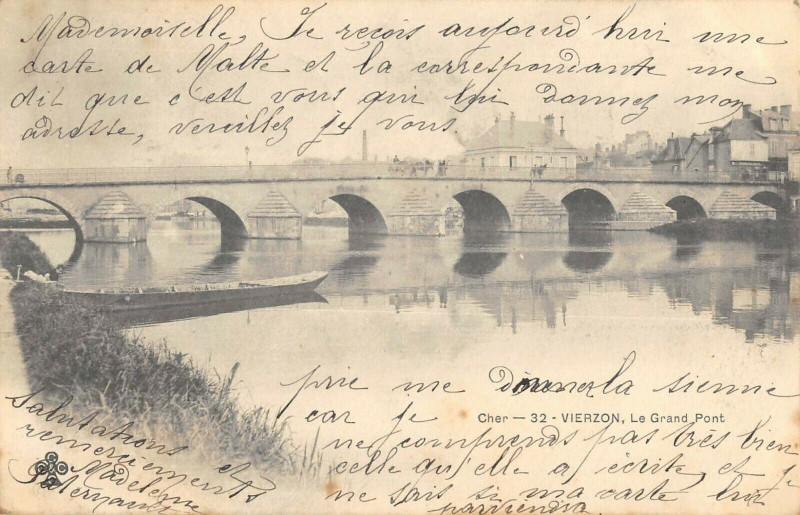 Mademoiselle, Je reçois aujourd'hui une
carte de Malte et la correspondante me
dit que c'est vous qui lui donnez mon
adresse, veuillez je vous
prie me donner la sienne
car je
Cher — 32 - VIERZON, Le Grand Pont
ne comprends pas très bien
celle qu'elle a écrite et je
ne sais si ma carte lui
parviendra
Salutations et
remerciements
Madeleine